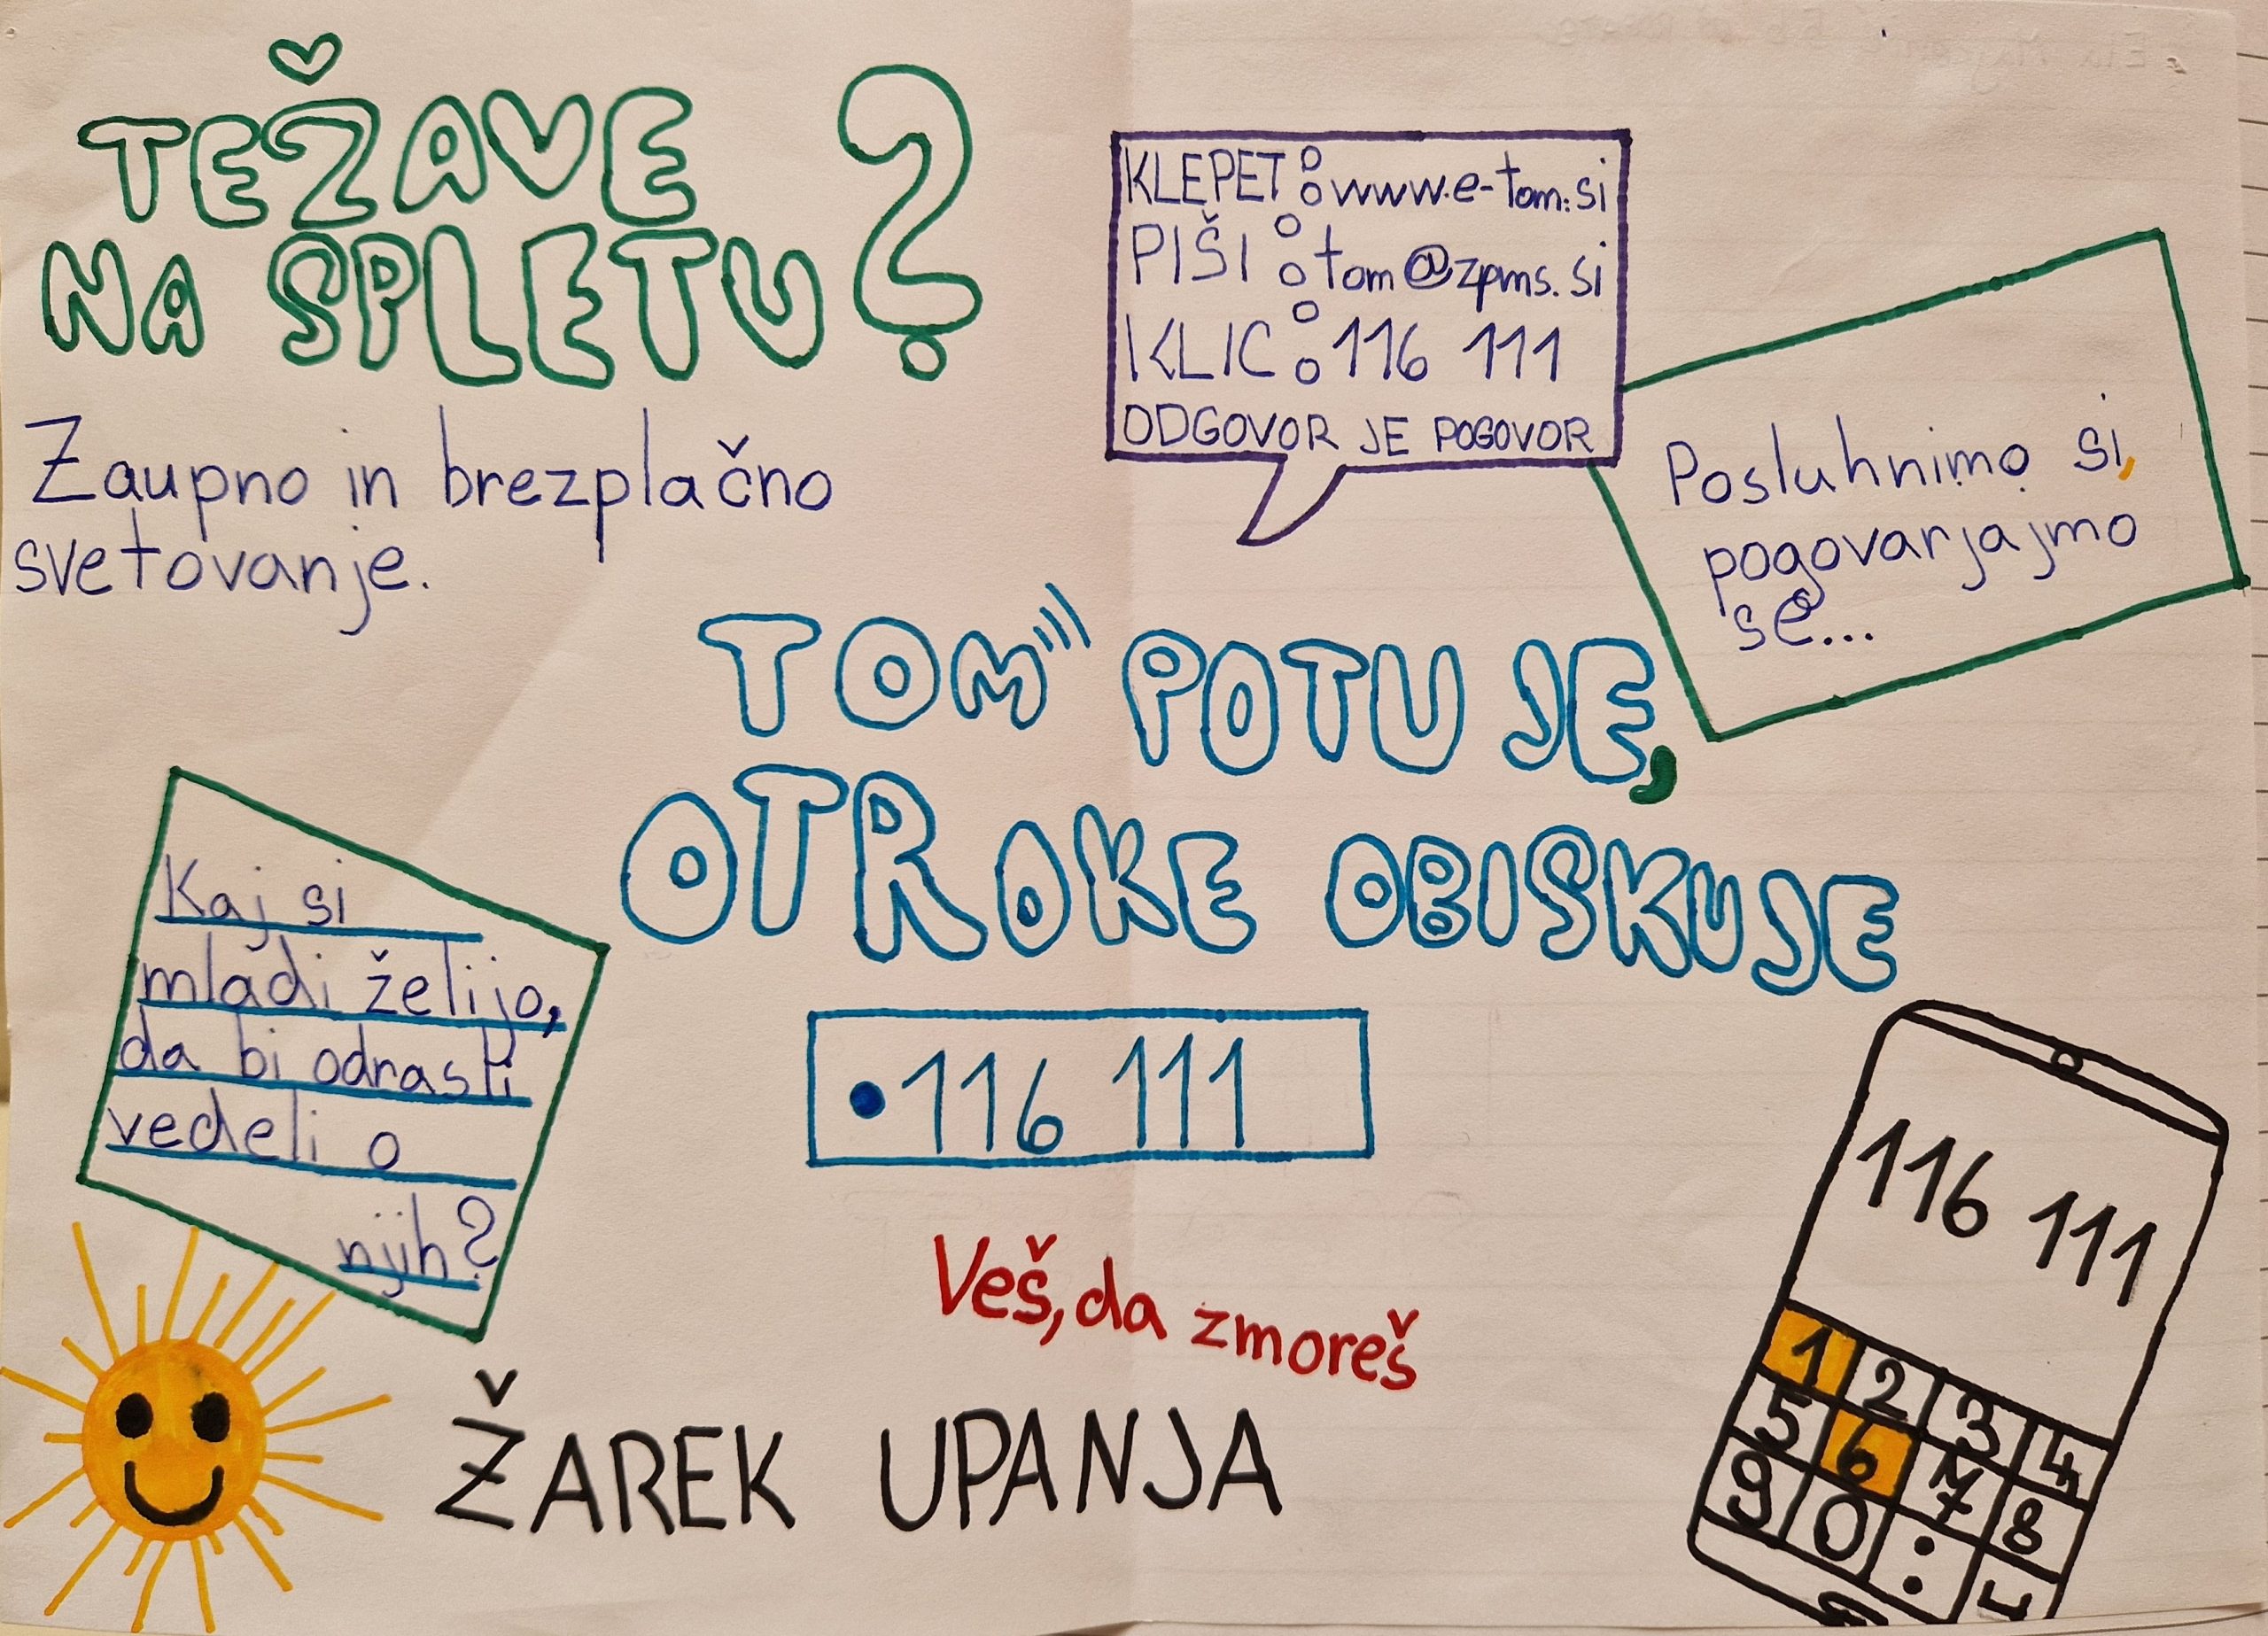 TEŽAVE
NA SPLETU?
Zaupno in brezplačno
svetovanje.
KLEPET: www.e-tom.si
PIŠI: tom@zpms.si
KLIC: 116 111
ODGOVOR JE POGOVOR
Posluhnimo si,
pogovarjajmo
se...
TOM POTUJE,
OTROKE OBISKUJE
Kaj si
mladi želijo,
da bi odrasli
vedeli o
njih?
•116 111
Veš, da zmoreš
ŽAREK UPANJA
116 111
1 2 3 4
5 6 7 8
9 0 :